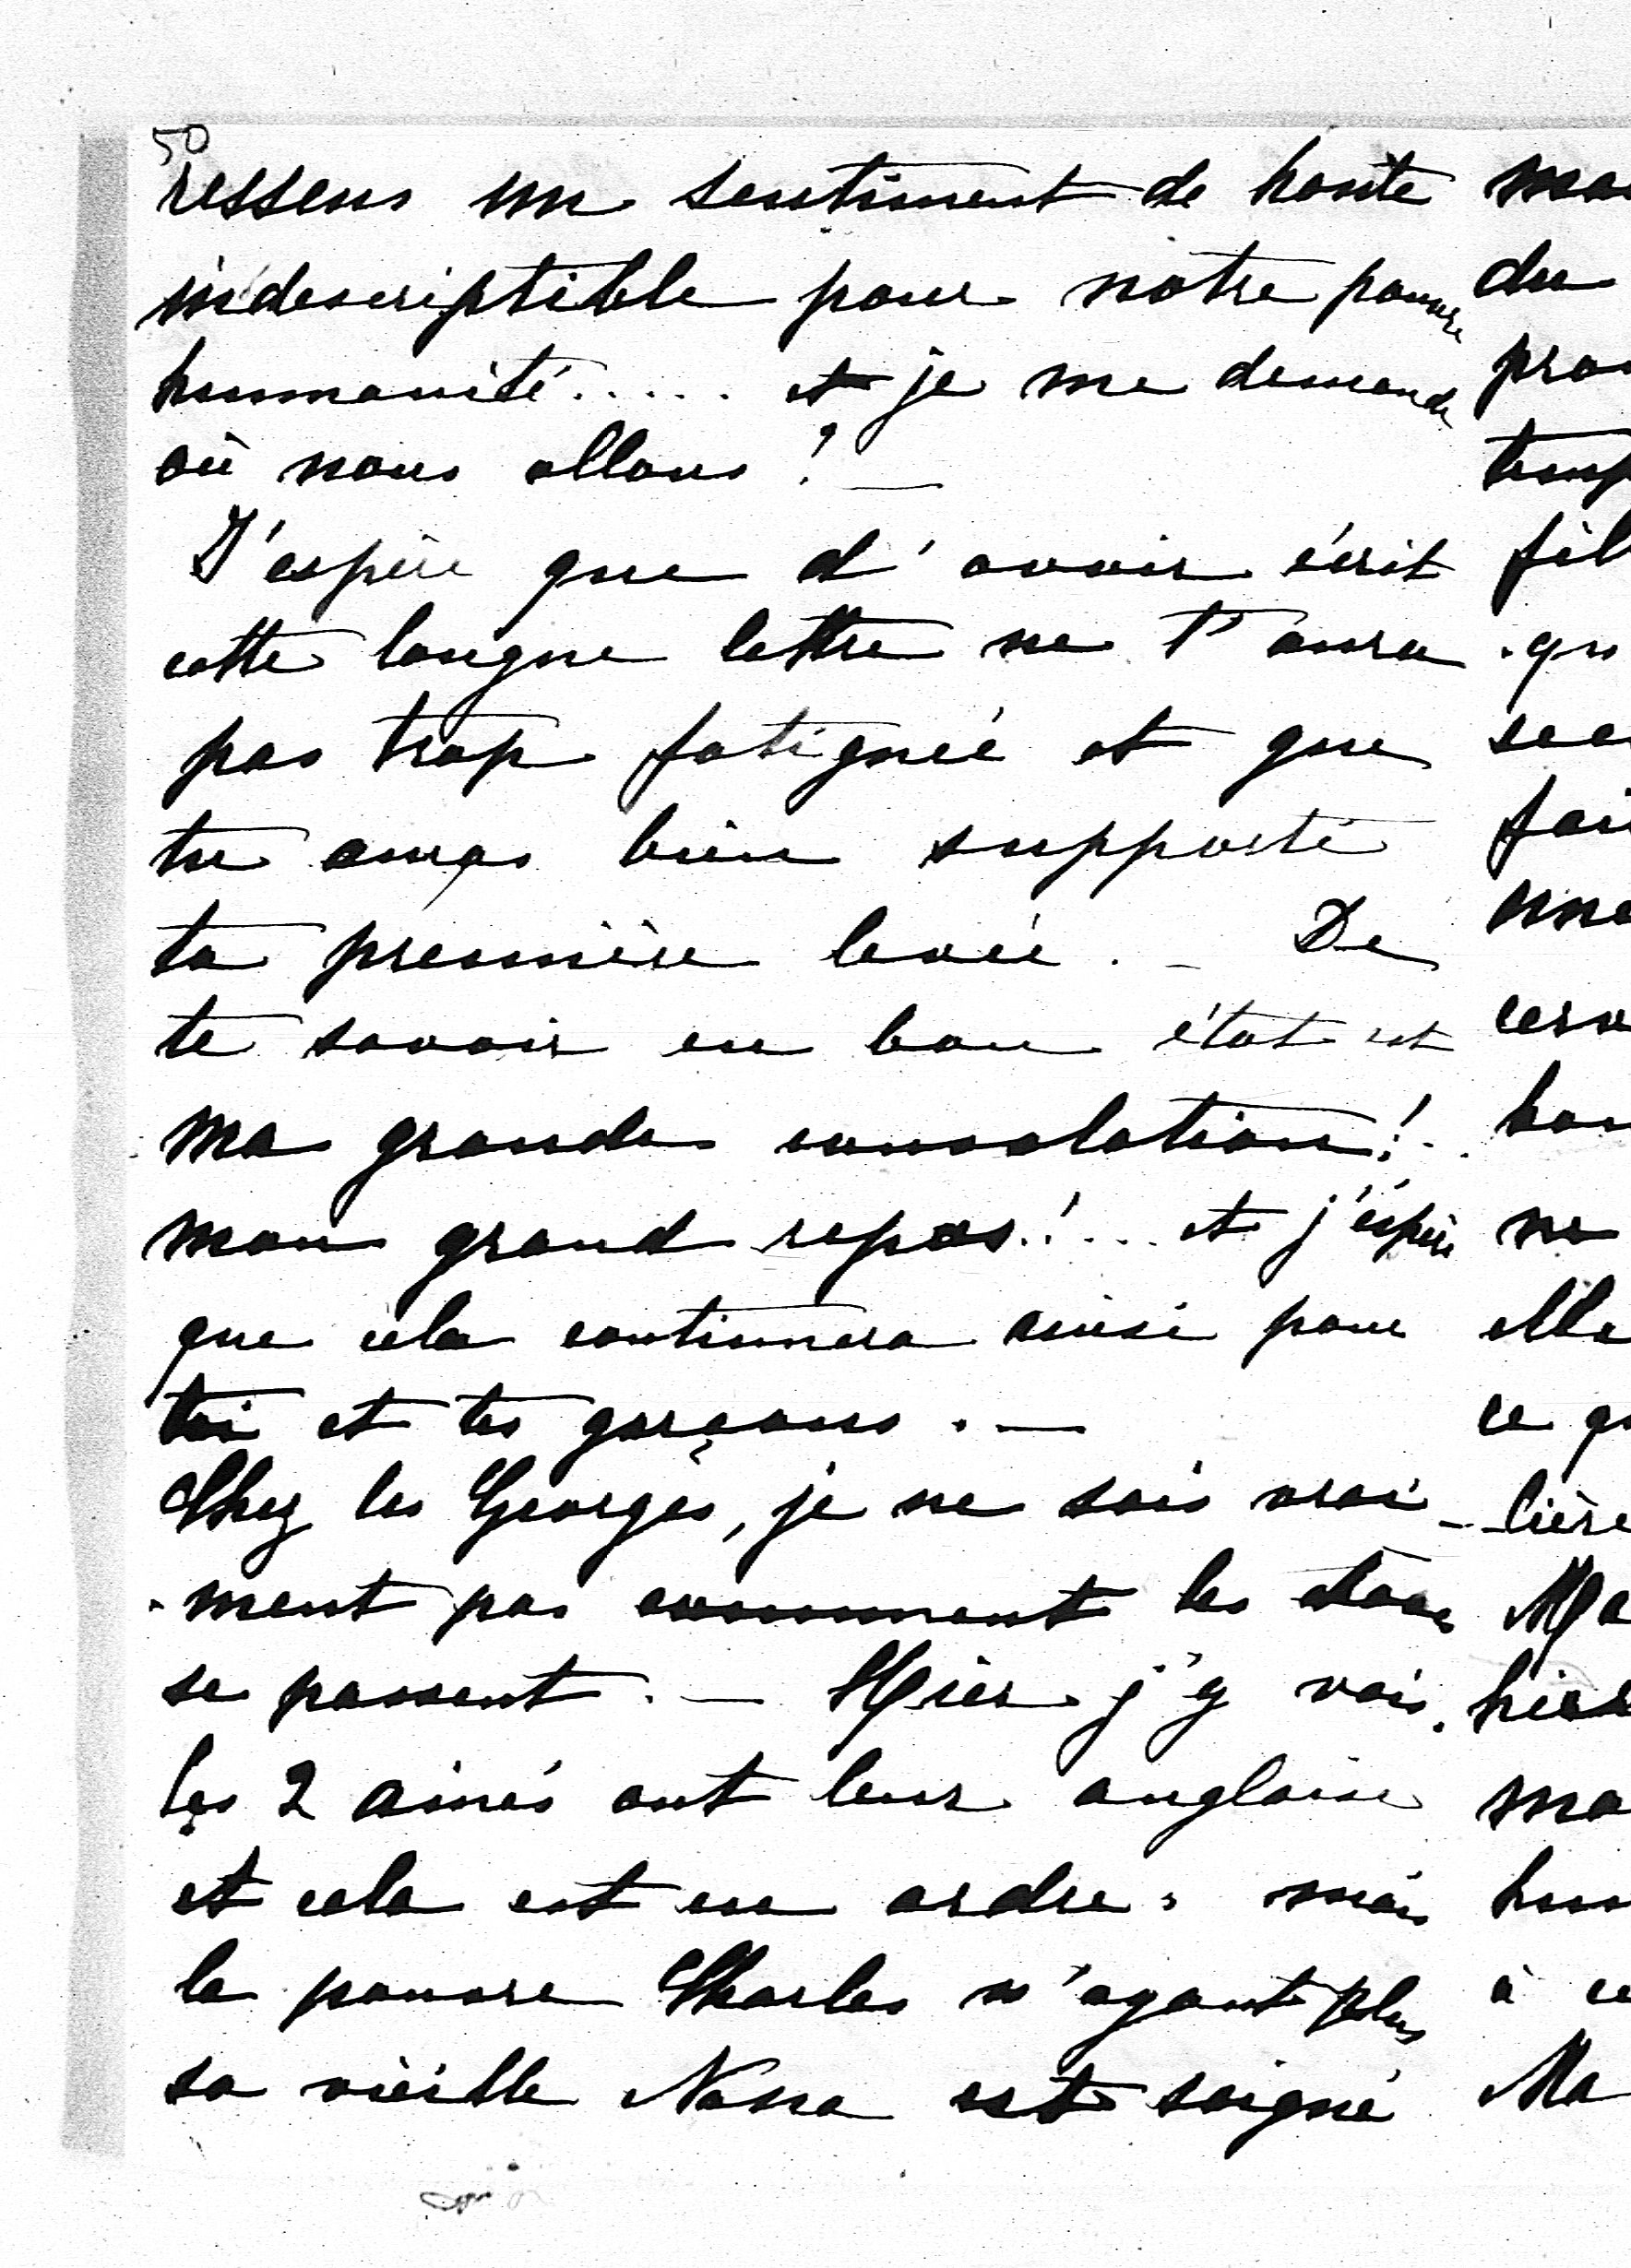 50
ressens un sentiment de honte
indescriptible pour notre pauvre
humanité..... et je me demande
où nous allons ? —
J'espère que d'avoir écrit
cette longue lettre ne t'aura
pas trop fatiguée et que
tu auras bien supporté
ta première levée. — De
te savoir en bon état est
ma grande consolation !..
mon grand repos !... et j'éspère
que cela continuera ainsi pour
toi et tes garçons. —
Chez les Georges, je ne sais vrai-
-ment pas comment les choses
se passent. — Hier j'y vais.
les 2 ainés ont leur anglaise
et cela est en ordre : mais
le pauvre Charles n'ayant plus
sa vieille Nana est soigné
du
ne
elle
-lière
hier
à ce
Ma